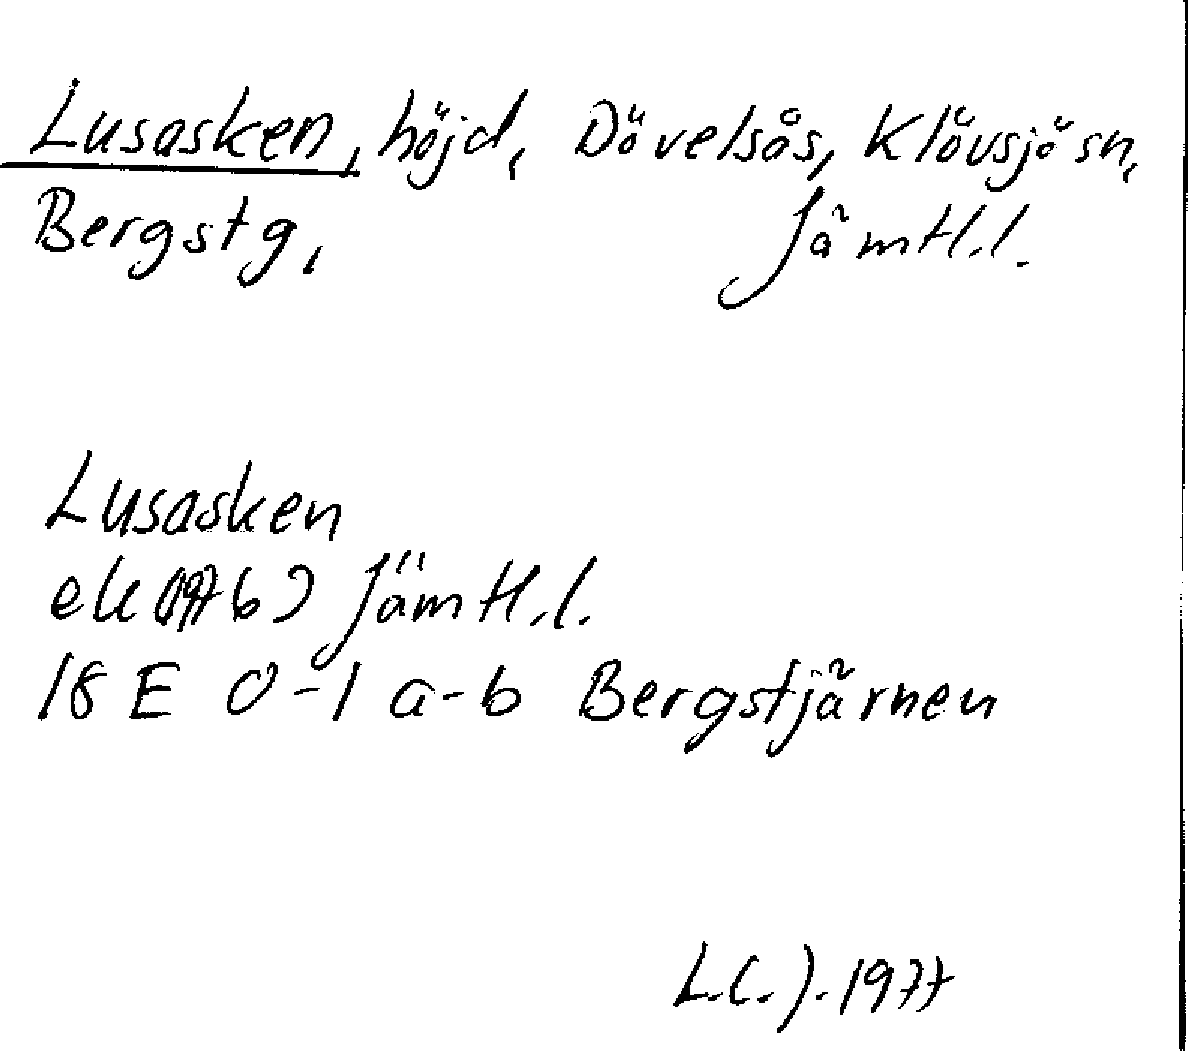 Lusasken, höjd, Dövelsås, Klövsjö sn,
Bergstg, Jämtl.l.
Lusasken
ek (1976) Jämtl.l.
18 E 0-1 a-b Bergstjärnen
L.C.J. 1977